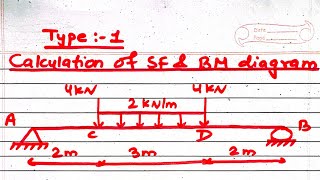 Type :- 1
Calculation of SF & BM diagram
4KN 4KN
2 KN/m
A B
C D
2m 3m 2m